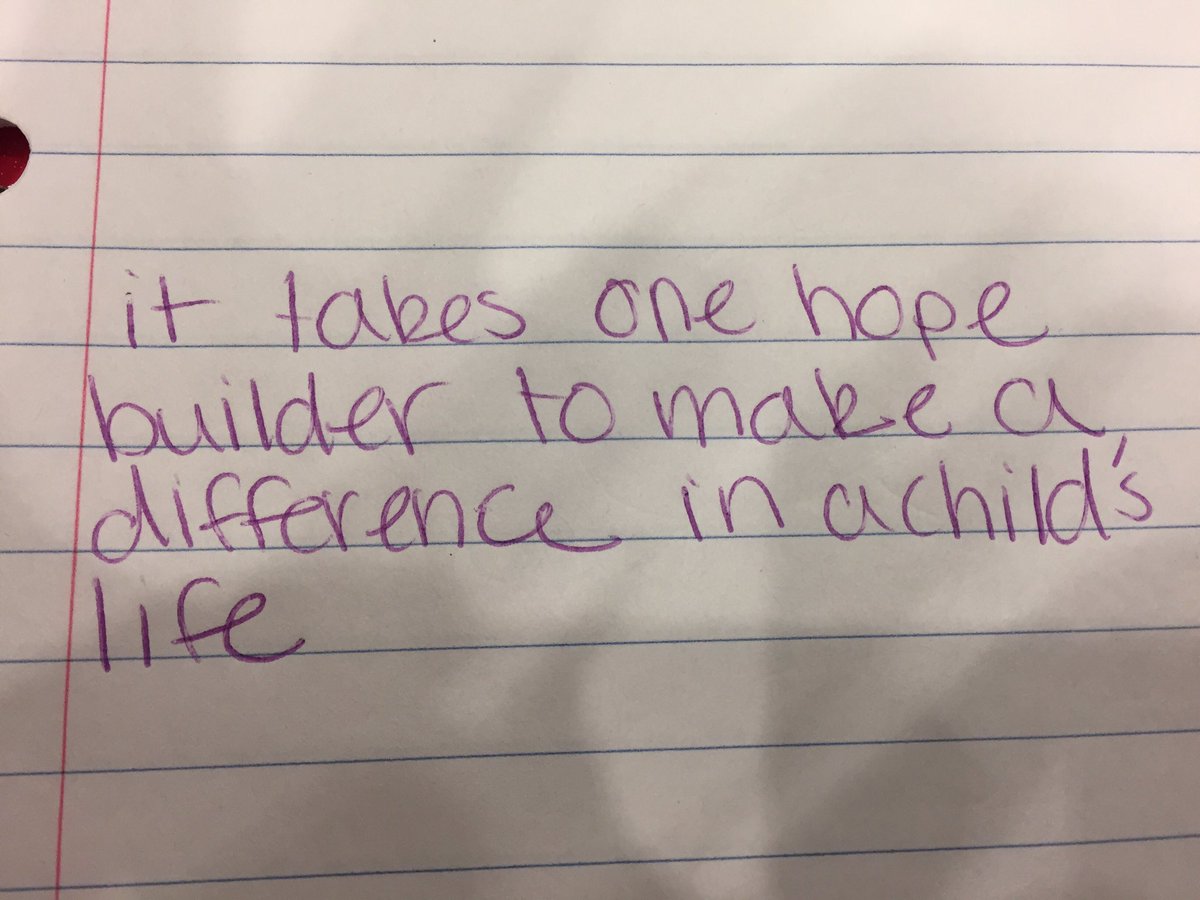 it takes one hope
builder to make a
difference in a child's
life